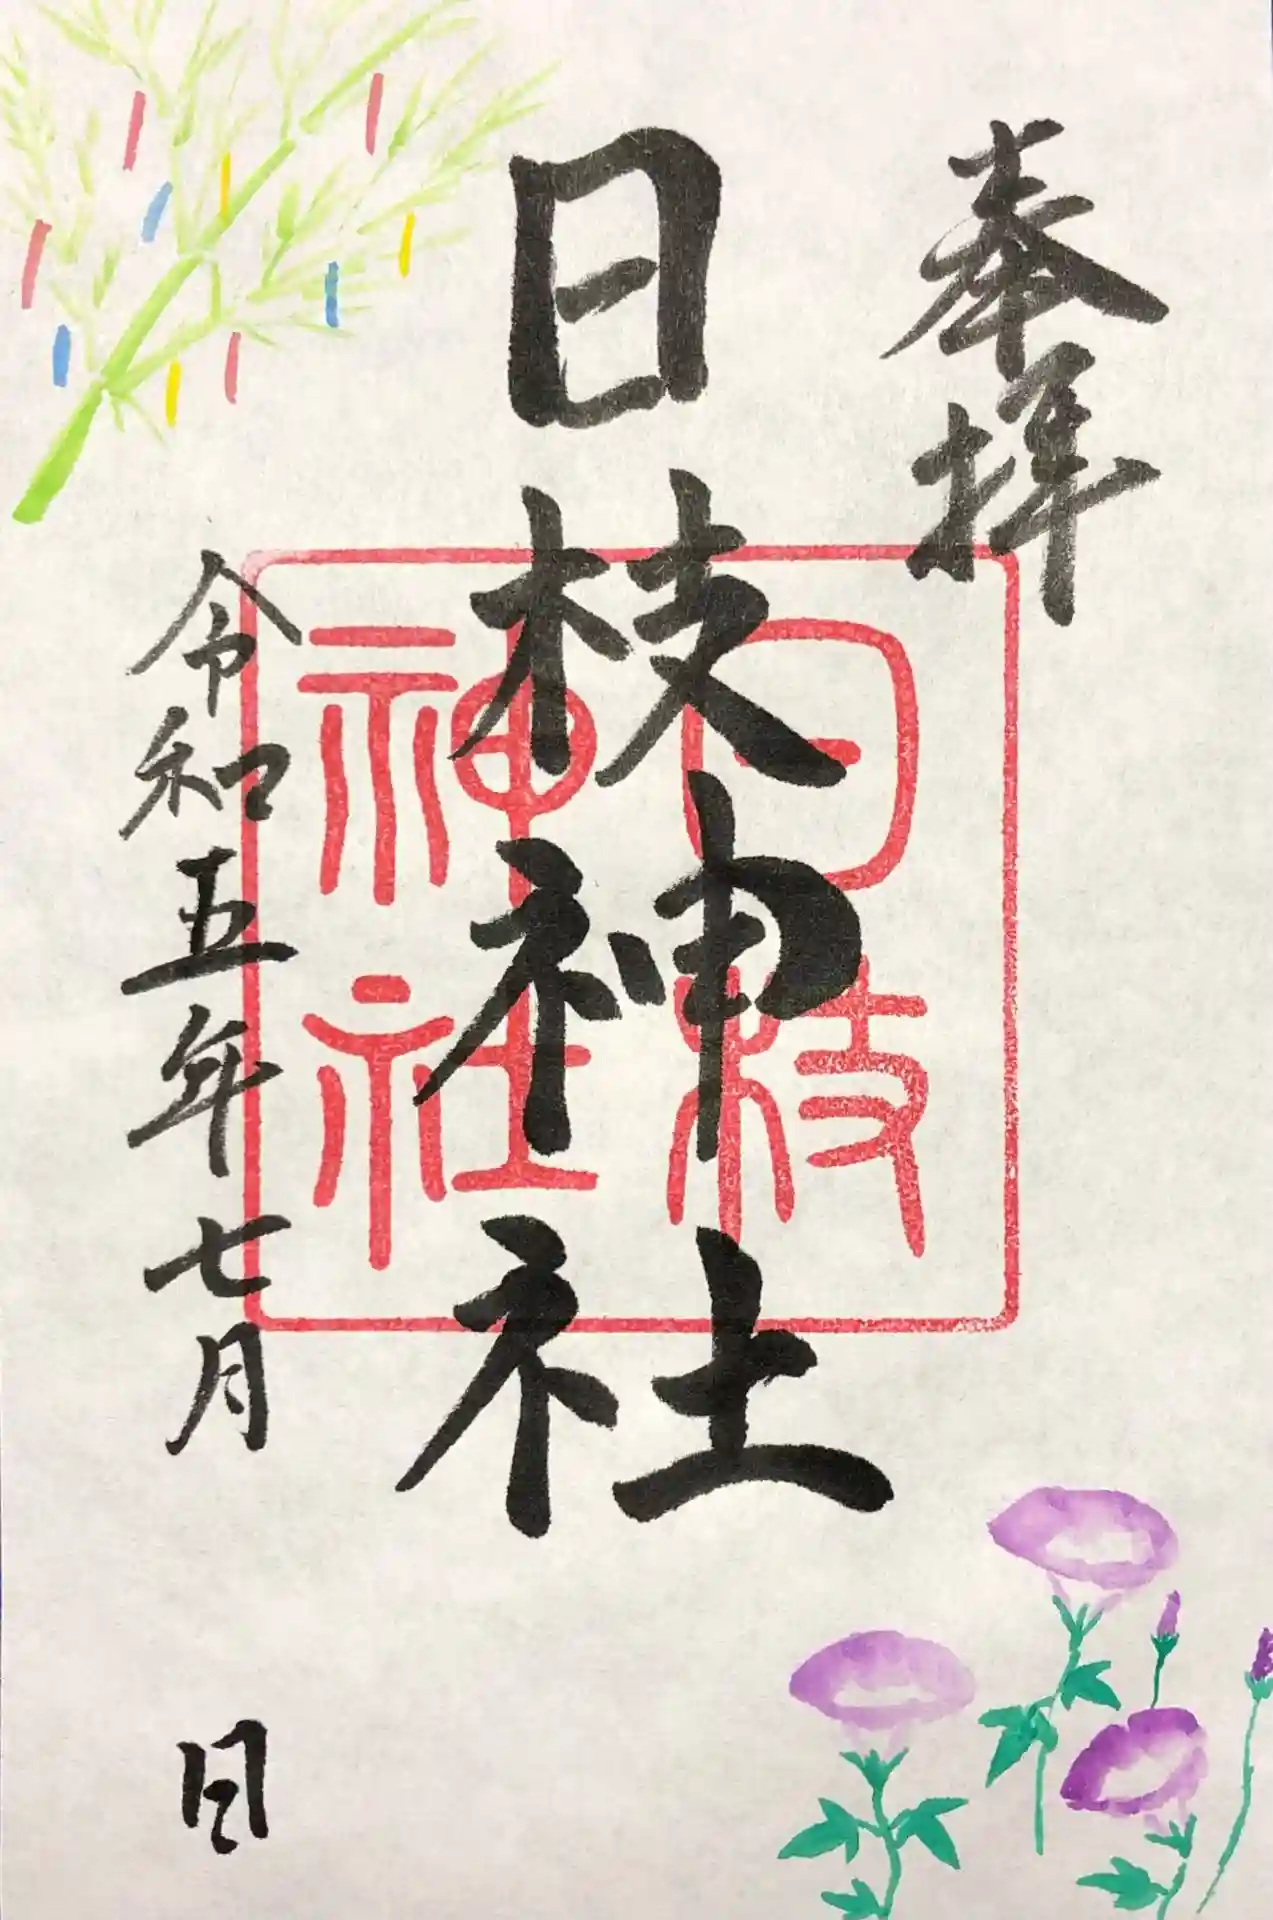 奉拝
日枝神社
日枝
神社
令和五年七月　日